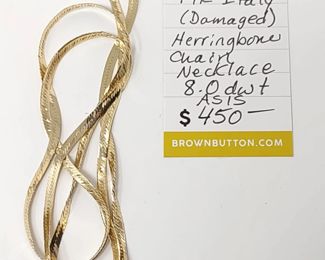 Italy
(Damaged)
Herringbone
Chain
Necklace
8.0 dwt
AS IS
$ 450—
BROWNBUTTON.COM